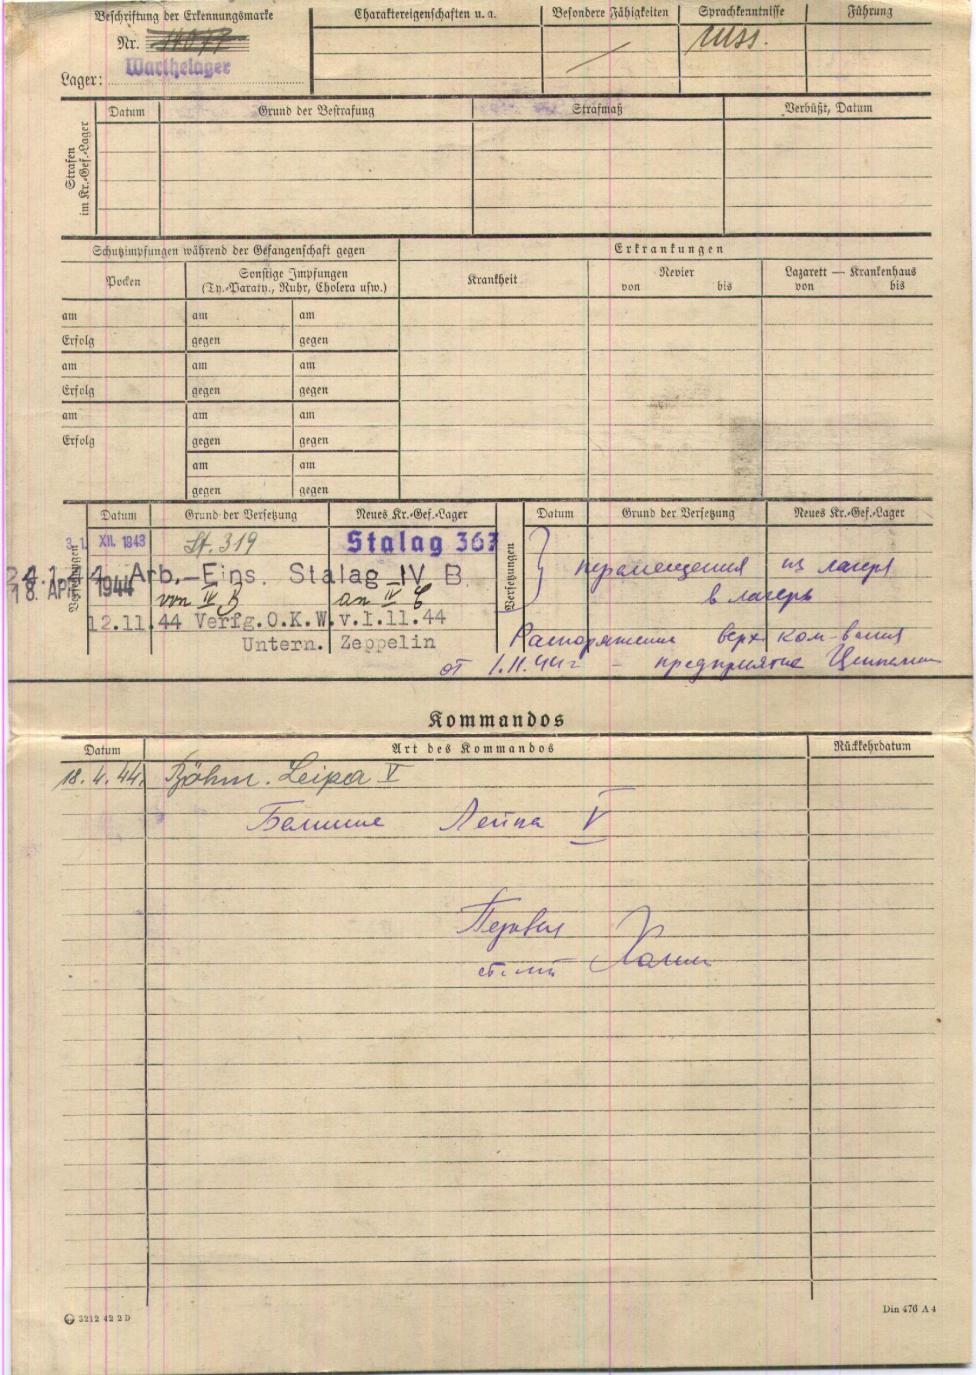 Beschriftung der Erkennungsmarke
Nr.
Warthelager
Lager:
Charaktereigenschaften u. a.
Besondere Fähigkeiten
Sprachkenntnisse
russ.
Führung
Strafen im Kr.-Gef.-Lager
Datum Grund der Bestrafung Strafmaß Verbüßt, Datum
Schutzimpfungen während der Gefangenschaft gegen
Erkrankungen
Pocken
Sonstige Impfungen
(Ty.-Paraty., Ruhr, Cholera usw.)
Krankheit
Revier
von bis
Lazarett — Krankenhaus
von bis
am am am
Erfolg gegen gegen
am am am
Erfolg gegen gegen
am am am
Erfolg gegen gegen
am am
gegen gegen
Versetzungen
Datum Grund der Versetzung Neues Kr.-Gef.-Lager
XII. 1943 St. 319 Stalag 367
Arb.-Eins. Stalag IV B
18. APR. 1944 von IV B an IV C
12.11.44 Verfg. O.K.W. v.1.11.44
Untern. Zeppelin
Versetzungen
Datum Grund der Versetzung Neues Kr.-Gef.-Lager
перемещения из лагеря
в лагерь
Распоряжение верх ком-вания
от 1.11.44г - предприятие Цеппелин
Kommandos
Datum Art des Kommandos Rückkehrdatum
18.4.44. Böhm. Leipa V
Бемише Лейпа V
Перевел
ст. л-т
3212 42 2 D
Din 476 A 4